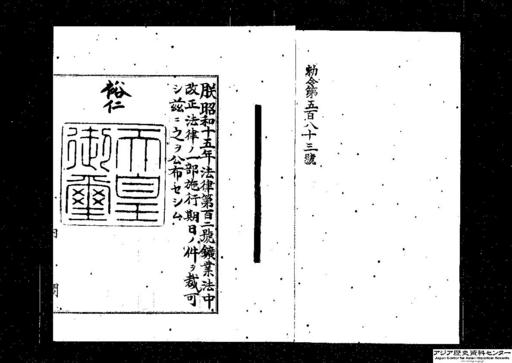 勅令第五百八十三號
朕昭和十五年法律第百二號鑛業法中
改正法律ノ一部施行期日ノ件ヲ裁可
シ茲ニ之ヲ公布セシム
裕仁
天皇
御璽
アジア歴史資料センター
Japan Center for Asian Historical Records